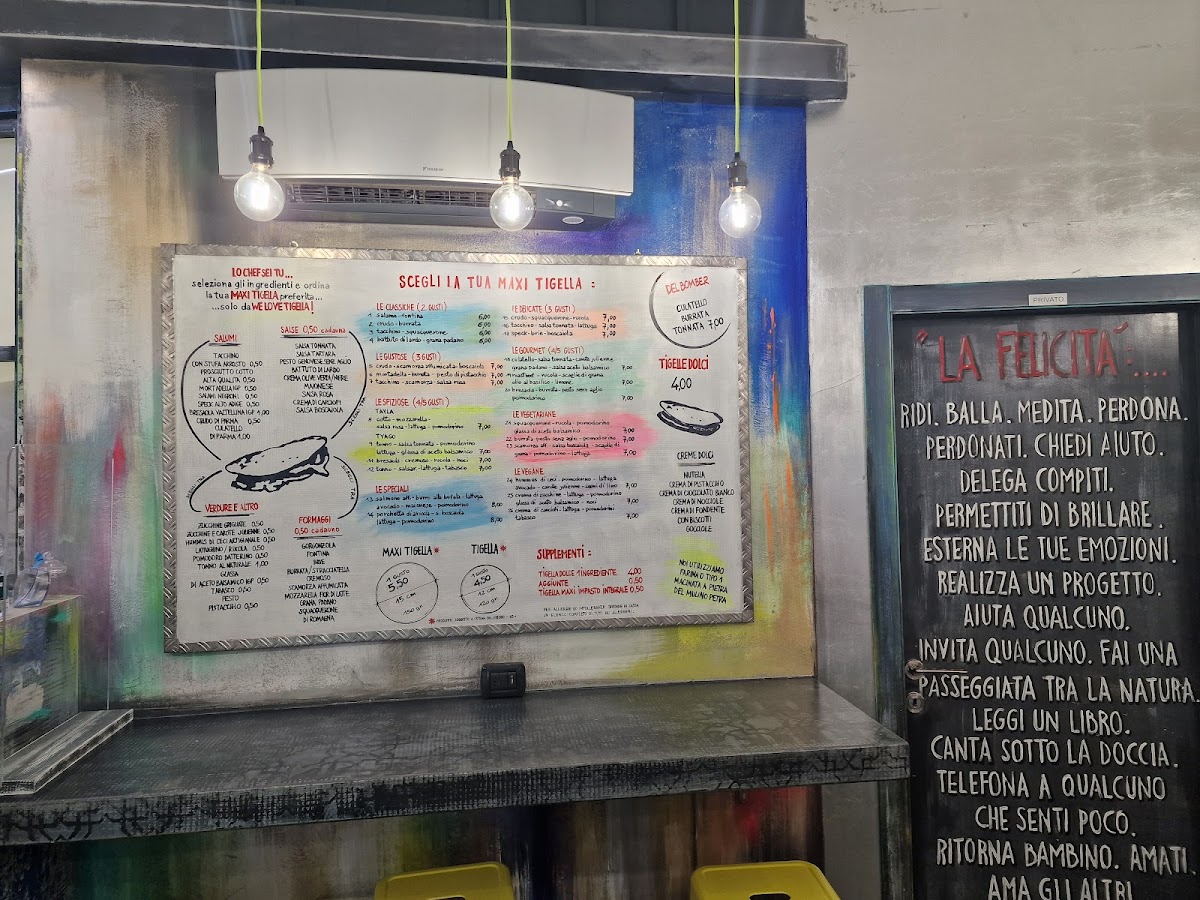 LO CHEF SEI TU...
seleziona gli ingredienti e ordina
la tua MAXI TIGELLA preferita...
...solo da WE LOVE TIGELLA!
SALUMI
TACCHINO
CON STUFA ARROSTO 0,50
PROSCIUTTO COTTO
ALTA QUALITÀ 0,50
MORTADELLA IGP 0,50
SALAME NEGRONI 0,50
SPECK ALTO ADIGE 0,50
BRESAOLA VALTELLINA IGP 1,00
CRUDO DI PARMA 0,50
CULATELLO
DI PARMA 1,00
SALSE 0,50 cadauna
SALSA TONNATA
SALSA TARTARA
PESTO GENOVESE SENZ'AGLIO
BATTUTO DI LARDO
CREMA OLIVE VERDI/NERE
MAIONESE
SALSA ROSA
CREMA DI CARCIOFI
SALSA BOSCAIOLA
VERDURE E ALTRO
ZUCCHINE GRIGLIATE 0,50
ZUCCHINE E CAROTE JULIENNE 0,50
HUMMUS DI CECI ARTIGIANALE 0,50
LATTUGHINO / RUCOLA 0,50
POMODORO DATTERINO 0,50
TONNO AL NATURALE 1,00
GLASSA
DI ACETO BALSAMICO IGP 0,50
TABASCO 0,50
PESTO
PISTACCHIO 0,50
FORMAGGI
0,50 cadauno
GORGONZOLA
FONTINA
BRIE
BURRATA / STRACCIATELLA
CREMOSO
SCAMORZA AFFUMICATA
MOZZARELLA FIOR DI LATTE
GRANA PADANO
SQUACQUERONE
DI ROMAGNA
SCEGLI LA TUA MAXI TIGELLA :
LE CLASSICHE (2 GUSTI)
1 salame - fontina 6,00
2 crudo - burrata 6,00
3 tacchino - squacquerone 6,00
4 battuto di lardo - grana padano 6,00
LE GUSTOSE (3 GUSTI)
5 crudo - scamorza affumicata - boscaiola 7,00
6 mortadella - burrata - pesto di pistacchio 7,00
7 tacchino - scamorza - salsa rosa 7,00
LE SFIZIOSE (4/5 GUSTI)
TAYLA
8 cotto - mozzarella -
salsa rosa - lattuga - pomodorino 7,00
TYAGO
9 tonno - salsa tonnata - pomodorino
lattuga - glassa di aceto balsamico 7,00
11 bresaola - cremoso - rucola - noci 7,00
12 tonno - salsar - lattuga - tabasco 7,00
LE SPECIALI
13 salmone aff. - burro alla betulla - lattuga
avocado - maionese - pomodorino 8,00
14 porchetta di ariccia - s. boscaiola
lattuga - pomodorino 8,00
MAXI TIGELLA*
1 GUSTO
5,50
15 cm
TIGELLA*
1 GUSTO
4,50
12 cm
LE DELICATE (3 GUSTI)
15 crudo - squacquerone - rucola 7,00
16 tacchino - salsa tonnata - lattuga 7,00
17 speck - brie - boscaiola 7,00
LE GOURMET (4/5 GUSTI)
18 culatello - salsa tonnata - carote julienne
grana padano - salsa aceto balsamico 7,00
olio al basilico - limone 7,00
pomodorino 7,00
LE VEGETARIANE
21 squacquerone - rucola - pomodorino
glassa di aceto balsamico 7,00
22 burrata - pesto senz'aglio - pomodorino 7,00
grana - pomodorino - lattuga 7,00
LE VEGANE
24 hummus di ceci - pomodorino - lattuga
avocado - carote julienne - semi di lino 7,00
25 crema di zucchine - lattuga - pomodorino
glassa di aceto balsamico - noci 7,00
26 crema di carciofi - lattuga - pomodorini
tabasco 7,00
SUPPLEMENTI :
TIGELLA DOLCE 1 INGREDIENTE 4,00
AGGIUNTE 0,50
TIGELLA MAXI IMPASTO INTEGRALE 0,50
DEL BOMBER
CULATELLO
BURRATA
TONNATA 7,00
TIGELLE DOLCI
4,00
CREME DOLCI
NUTELLA
CREMA DI PISTACCHIO
CREMA DI CIOCCOLATO BIANCO
CREMA DI NOCCIOLE
CREMA DI FONDENTE
CON BISCOTTI
GOCCIOLE
NOI UTILIZZIAMO
FARINA DI TIPO 1
MACINATA A PIETRA
DEL MULINO PETRA
PRIVATO
"LA FELICITÀ":....
RIDI. BALLA. MEDITA. PERDONA.
PERDONATI. CHIEDI AIUTO.
DELEGA COMPITI.
PERMETTITI DI BRILLARE.
ESTERNA LE TUE EMOZIONI.
REALIZZA UN PROGETTO.
AIUTA QUALCUNO.
INVITA QUALCUNO. FAI UNA
PASSEGGIATA TRA LA NATURA.
LEGGI UN LIBRO.
CANTA SOTTO LA DOCCIA.
TELEFONA A QUALCUNO
CHE SENTI POCO.
RITORNA BAMBINO. AMATI.
AMA GLI ALTRI